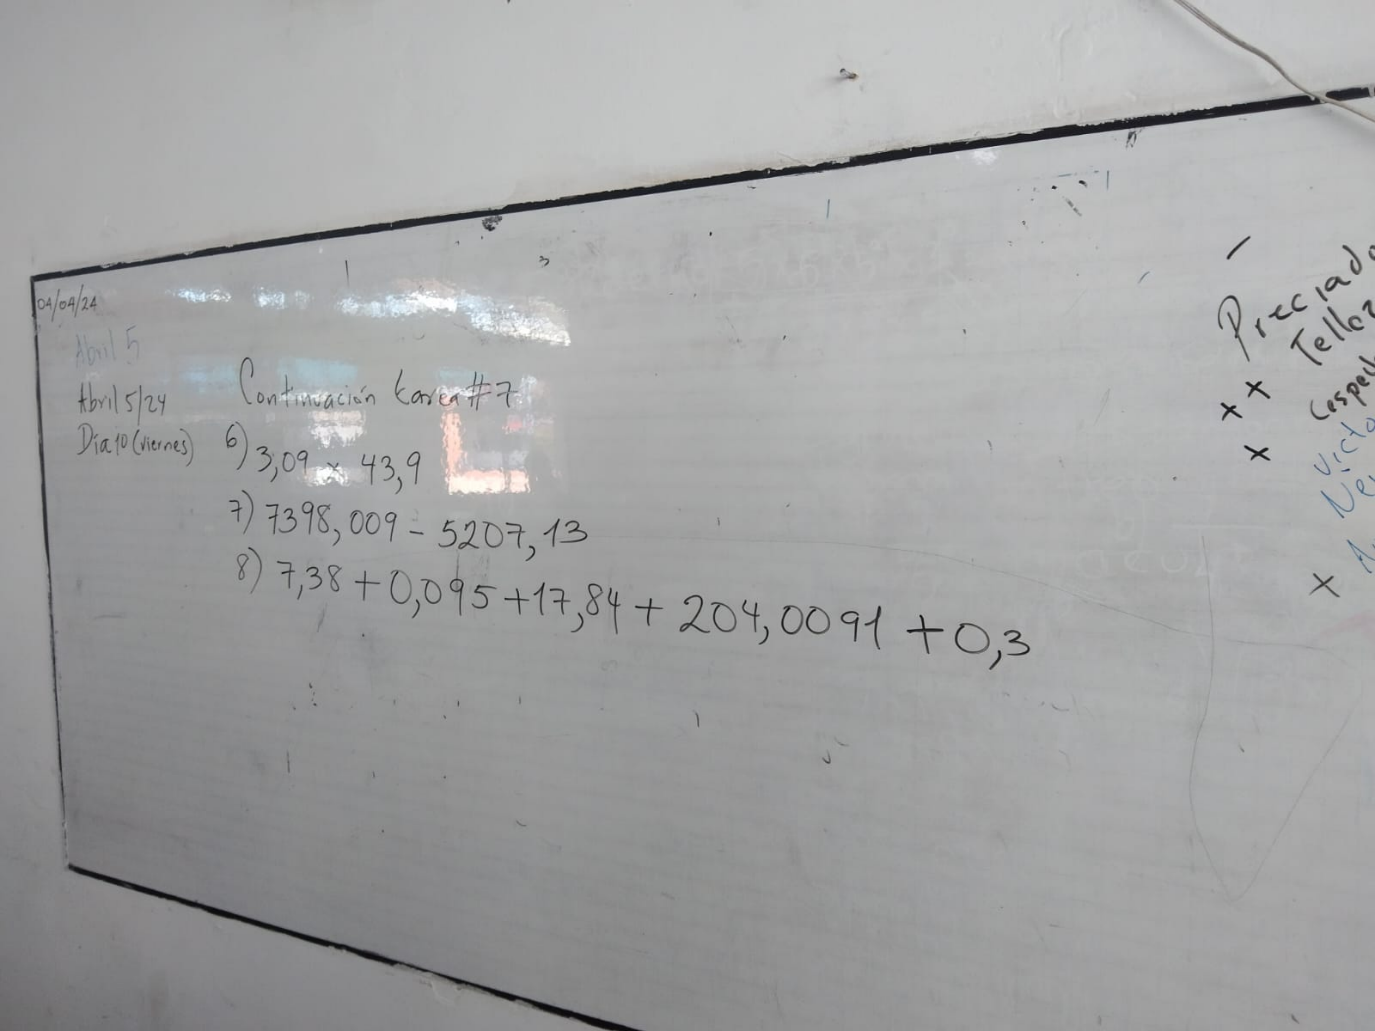 04/04/24
Abril 5
Abril 5/24
Día 10 (viernes)
Continuación tarea #7
6) 3,09 x 43,9
7) 7398,009 - 5207,13
8) 7,38 + 0,095 + 17,84 + 204,0091 + 0,3
Preciado
x x Tellez
x
x